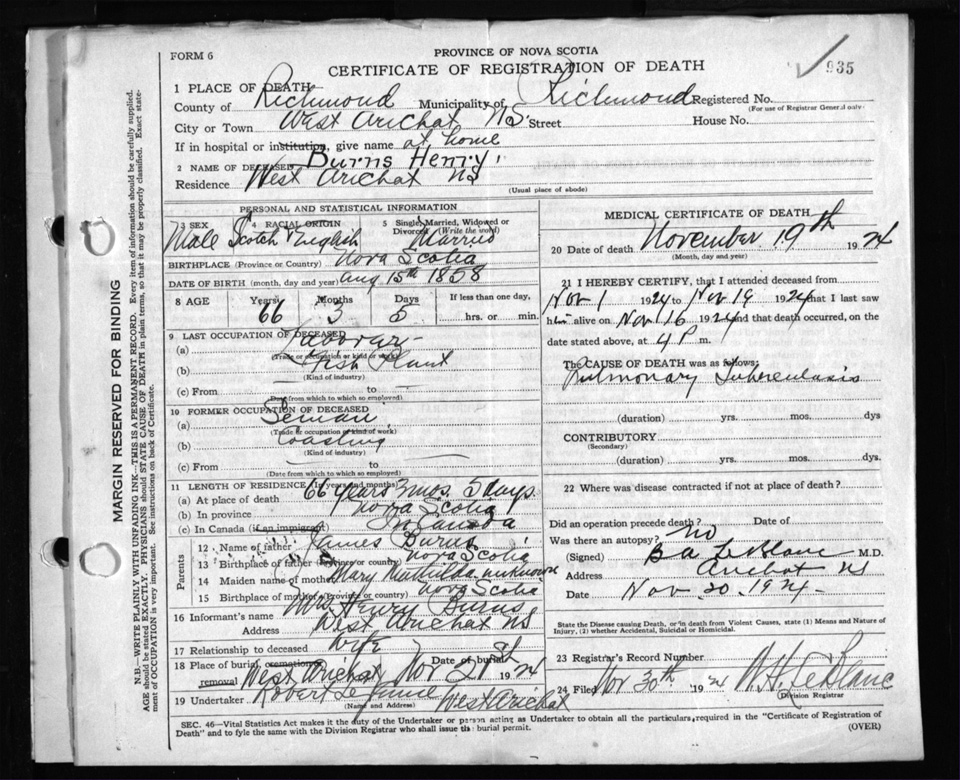 FORM 6
PROVINCE OF NOVA SCOTIA
CERTIFICATE OF REGISTRATION OF DEATH
935
1 PLACE OF DEATH—
County of Richmond Municipality of Richmond Registered No.
(For use of Registrar General only)
City or Town West Arichat NS Street House No.
If in hospital or institution, give name at home
2 NAME OF DECEASED Burns Henry
Residence West Arichat NS
(Usual place of abode)
PERSONAL AND STATISTICAL INFORMATION
3 SEX 4 RACIAL ORIGIN 5 Single, Married, Widowed or Divorced (Write the word)
Male Scotch & English Married
BIRTHPLACE (Province or Country) Nova Scotia
DATE OF BIRTH (month, day and year) Aug 15th 1858
8 AGE Years Months Days If less than one day,
66 3 5 hrs. or min.
9 LAST OCCUPATION OF DECEASED
(a) Laborer
(Trade or occupation or kind of work)
(b) Fish Plant
(Kind of industry)
(c) From to
(Date from which to which so employed)
10 FORMER OCCUPATION OF DECEASED
(a) Seman
(Trade or occupation or kind of work)
(b) Coasting
(Kind of industry)
(c) From to
(Date from which to which so employed)
11 LENGTH OF RESIDENCE (In years and months)
(a) At place of death 66 years 3 mos. 5 days
(b) In province Nova Scotia
(c) In Canada (if an immigrant) In Canada
Parents
12 Name of father James Burns
13 Birthplace of father (Province or country) Nova Scotia
14 Maiden name of mother Mary Mathilda unknown
15 Birthplace of mother (Province or country) Nova Scotia
16 Informant's name Mrs Henry Burns
Address West Arichat NS
17 Relationship to deceased wife
18 Place of burial, cremation or removal West Arichat Date of burial Nov 21st 1924
19 Undertaker Robert West Arichat
(Name and Address)
MEDICAL CERTIFICATE OF DEATH
20 Date of death November 19th 1924
(Month, day and year)
21 I HEREBY CERTIFY, that I attended deceased from
Nov 1 1924 to Nov 19 1924 that I last saw
him alive on Nov 16 1924 and that death occurred, on
date stated above, at 4 P m.
The CAUSE OF DEATH was as follows:
Pulmonary Tuberculosis
(duration) yrs. mos. dys
CONTRIBUTORY
(Secondary)
(duration) yrs. mos. dys.
22 Where was disease contracted if not at place of death?
Did an operation precede death? Date of
Was there an autopsy? No
(Signed) B A LeBlanc M.D.
Address Arichat NS
Date Nov 20 1924
State the Disease causing Death, or in death from Violent Causes, state (1) Means and Nature of
Injury, (2) whether Accidental, Suicidal or Homicidal.
23 Registrar's Record Number
24 Filed Nov 30th 1924 LeBlanc
Division Registrar
SEC. 46—Vital Statistics Act makes it the duty of the Undertaker or person acting as Undertaker to obtain all the particulars required in the "Certificate of Registration of
Death" and to fyle the same with the Division Registrar who shall issue the burial permit.
(OVER)
MARGIN RESERVED FOR BINDING
N.B.—WRITE PLAINLY WITH UNFADING INK—THIS IS A PERMANENT RECORD. Every item of information should be carefully supplied.
AGE should be stated EXACTLY. PHYSICIANS should STATE CAUSE OF DEATH in plain terms, so that it may be properly classified. Exact statement
of OCCUPATION is very important. See instructions on back of Certificate.